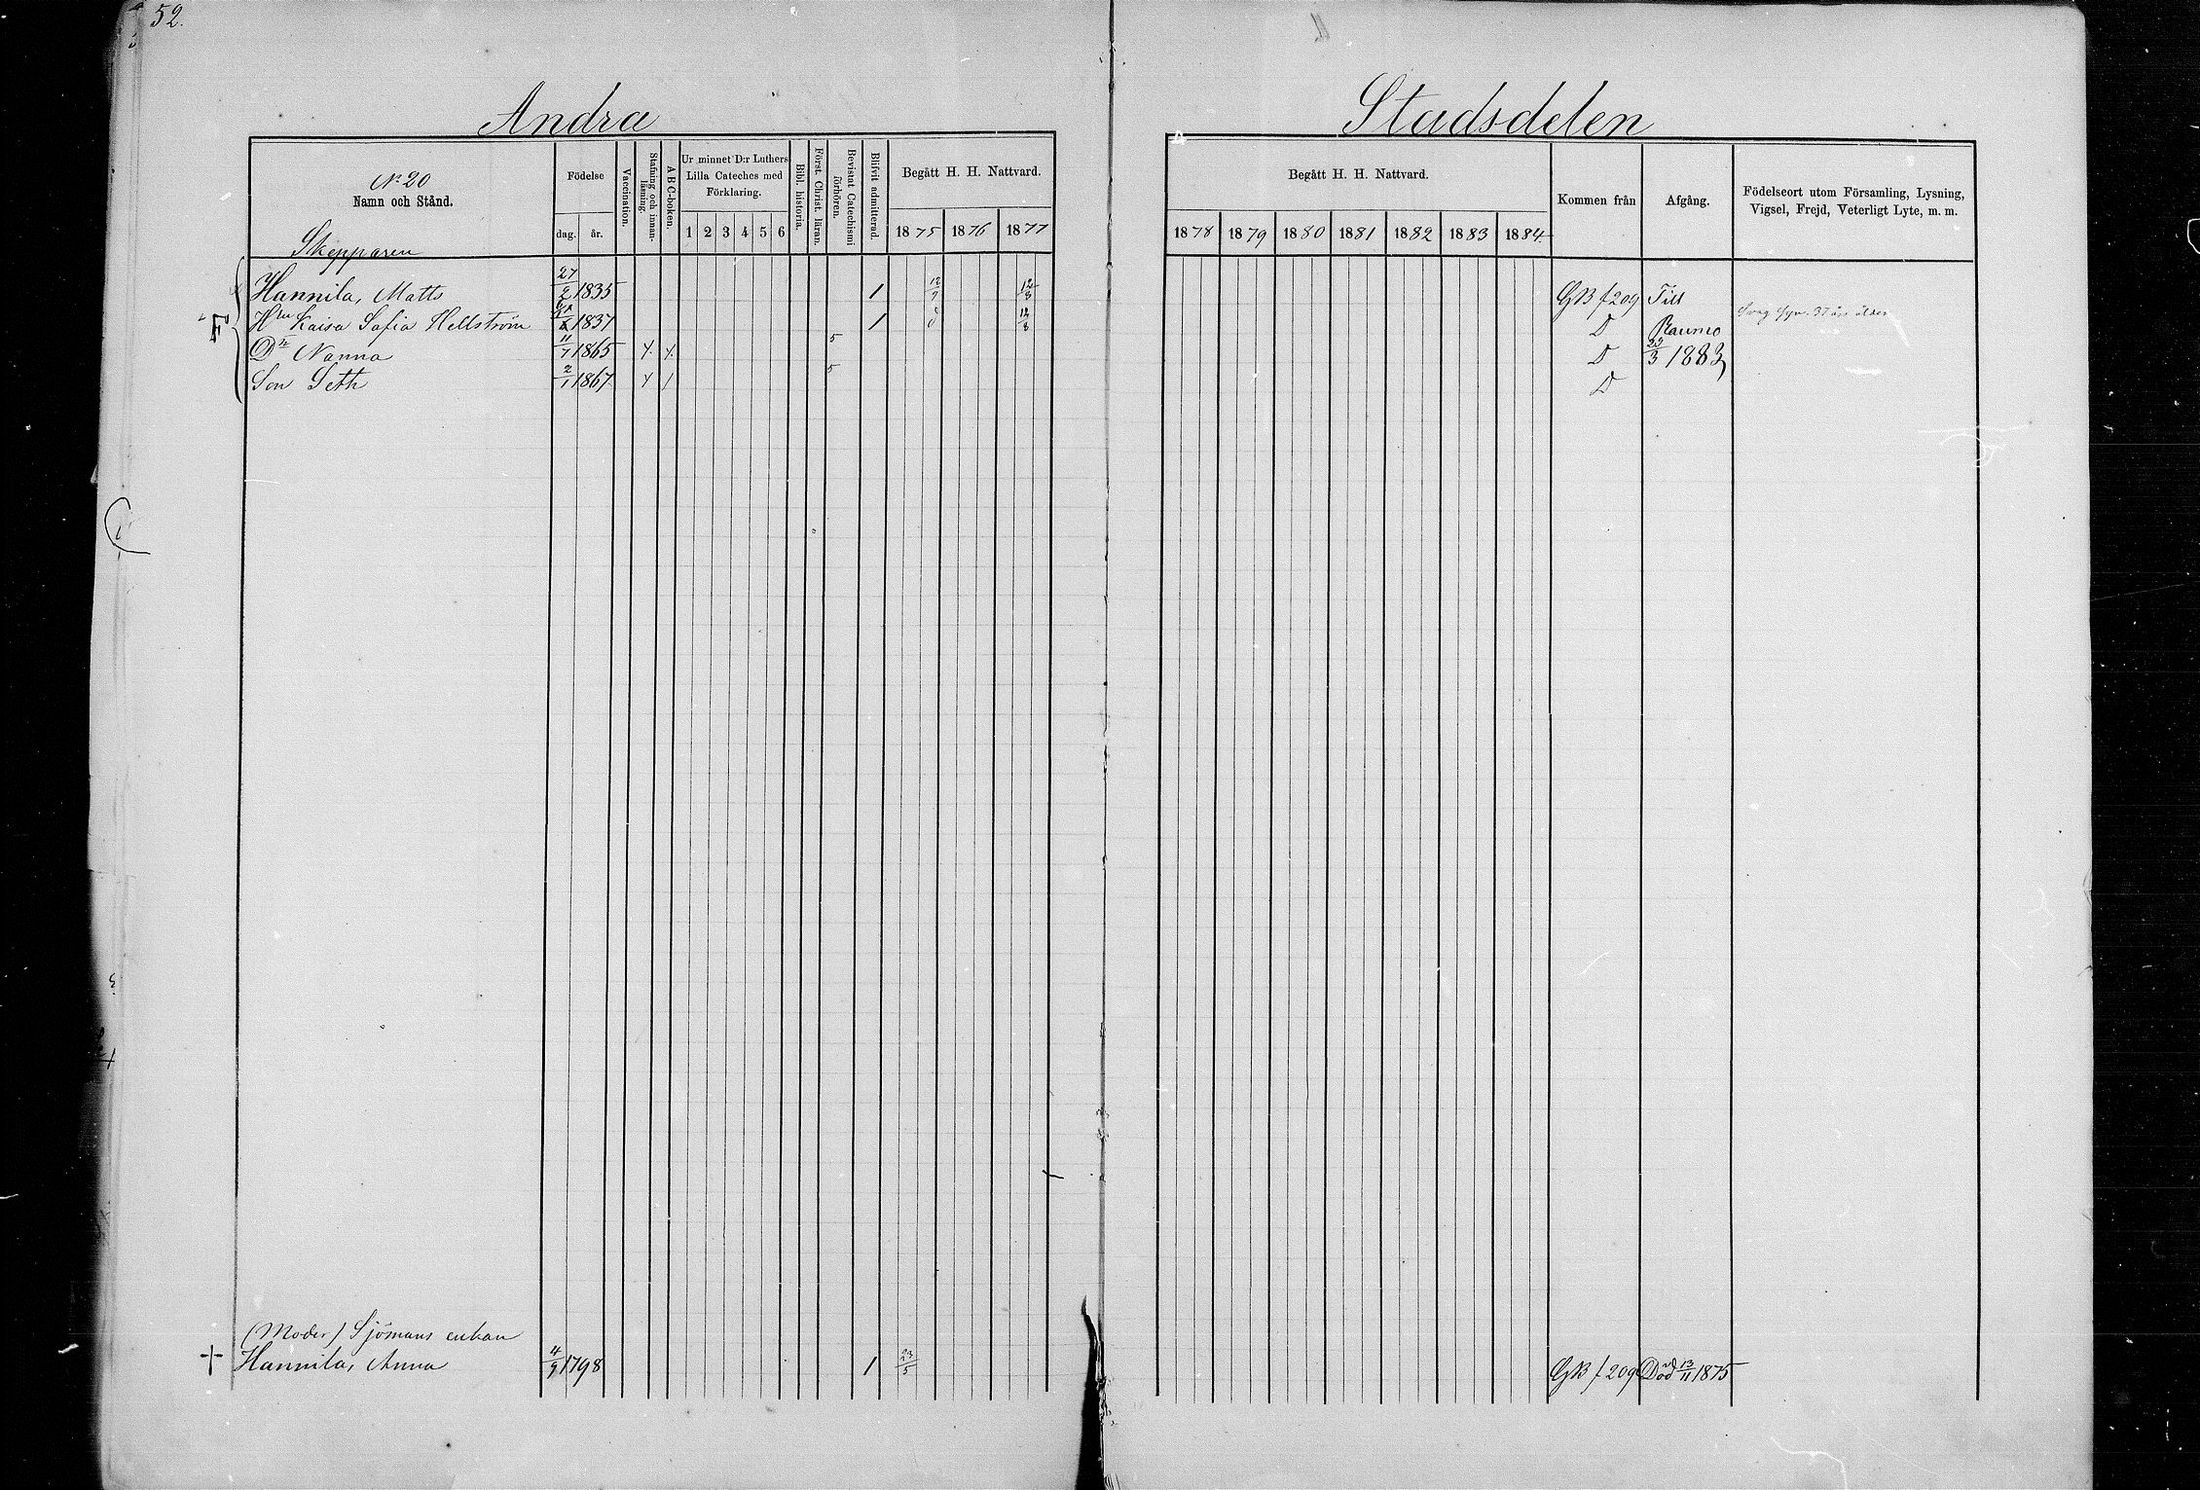 52.
Andra Stadsdelen
No 20
Namn och Stånd.
Födelse
dag. år.
Vaccination.
Stafning och innan-läsning.
ABC-boken.
Ur minnet D:r Luthers
Lilla Cateches med
Förklaring.
1 2 3 4 5 6
Bibl. historia.
Först. Christ. läran.
Bevistat Catechismi förhören.
Blifvit admitterad.
Begått H. H. Nattvard.
1875 1876 1877
Begått H. H. Nattvard.
1878 1879 1880 1881 1882 1883 1884
Kommen från
Afgång.
Födelseort utom Församling, Lysning,
Vigsel, Frejd, Veterligt Lyte, m. m.
Skepparen
Hannila, Matts 27/2 1835 1 12/9 12/8 GB f 209 Till
Hru Kaisa Sofia Hellström 1837 1 12/8 D Raumo
Dr Nanna 11/7 1865 5 D 23/3 1883
Son Seth 2/1 1867 5 D
(Moder) Sjömans enkan
† Hannila, Anna 4/9 1798 1 23/5 GB f 209 Död 13/11 1875